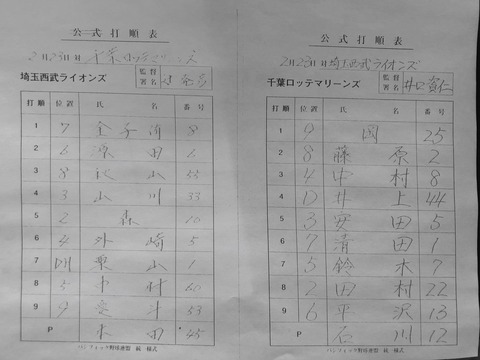 公式打順表
2月23日 対 千葉ロッテマリンズ
埼玉西武ライオンズ 監督署名 辻 発彦
打順 位置 氏名 番号
1 7 金子侑 8
2 6 源田 6
3 8 秋山 55
4 3 山川 33
5 2 森 10
6 4 外崎 5
7 DH 栗山 1
8 5 中村 60
9 9 愛斗 53
P 本田 45
パシフィック野球連盟 統一様式
公式打順表
2月23日 対 埼玉西武ライオンズ
千葉ロッテマリーンズ 監督署名 井口資仁
打順 位置 氏名 番号
1 9 岡 25
2 8 藤原 2
3 4 中村 8
4 D 井上 44
5 3 安田 5
6 7 清田 1
7 5 鈴木 7
8 2 田村 22
9 6 平沢 13
P 石川 12
パシフィック野球連盟 統一様式